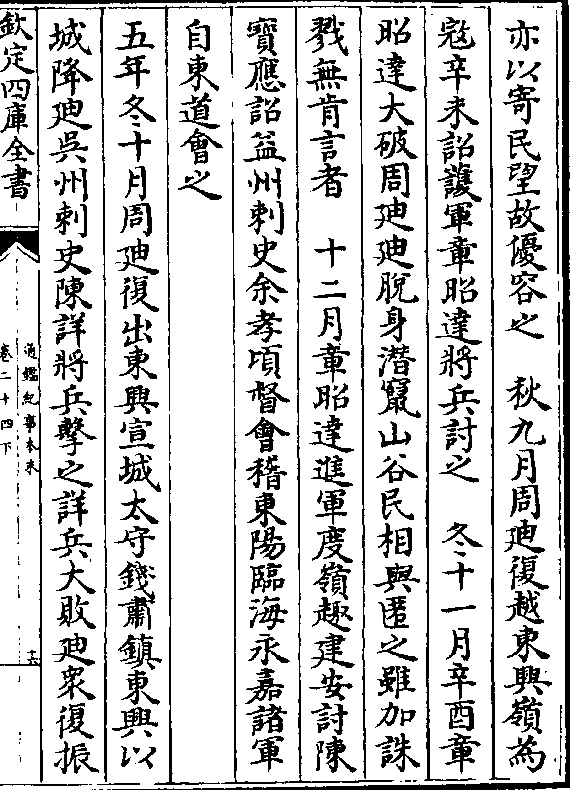 亦以寄民望故優容之　秋九月周廸復越東興嶺為
冦辛未詔護軍章昭達將兵討之　冬十一月辛酉章
昭達大破周廸廸脫身潛竄山谷民相與匿之雖加誅
戮無肯言者　十二月章昭達進軍度嶺趣建安討陳
寶應詔益州刺史余孝頃督會稽東陽臨海永嘉諸軍
自東道會之
五年冬十月周廸復出東興宣城太守錢肅鎮東興以
城降廸吳州刺史陳詳將兵擊之詳兵大敗廸衆復振
欽定四庫全書
通鑑紀事本末
卷二十四下
十六